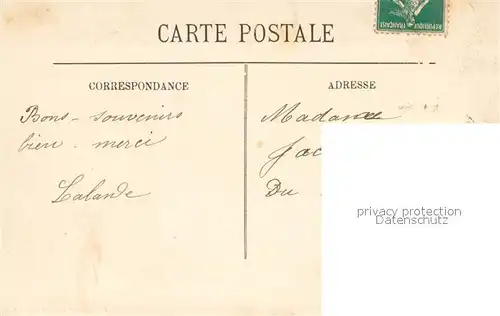 CARTE POSTALE
CORRESPONDANCE
ADRESSE
Bons - souvenirs
bien. merci
Lalande
Madame
Jac
Du
privacy protection
Datenschutz